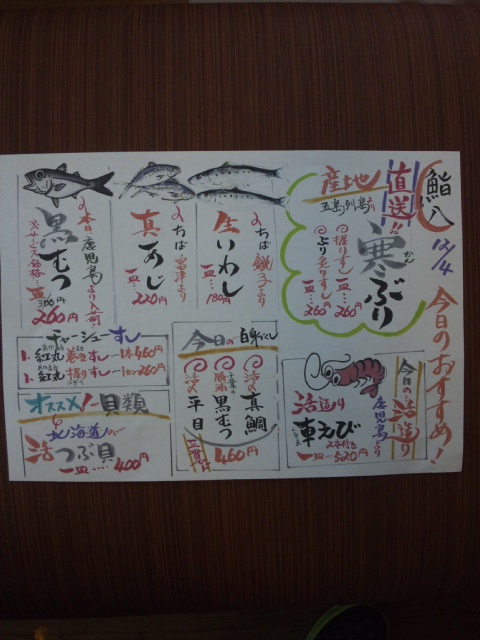 鮨八
12/4
今日のおすすめ！
産地直送!!
五島列島より
寒ぶり
かん
握りずし
一皿…260円
ぶり炙りずし
一皿…260円
ちば銚子より
生いわし
一皿…180円
ちば富津より
真あじ
一皿…220円
本日鹿児島より入荷!
黒むつ
※サービス価格
一皿
300円
260円
チャーシューすし
1、紅丸巻きずし…1本460円
1、紅丸握りずし…1カン260円
オススメ！貝類
北海道の
活つぶ貝
一皿…400円
今日の白身づくし
活〆真鯛
千葉の勝浦
黒むつ
活〆平目
三貫
460円
今日の活造り
鹿児島より
活造り
車えび
一皿…520円